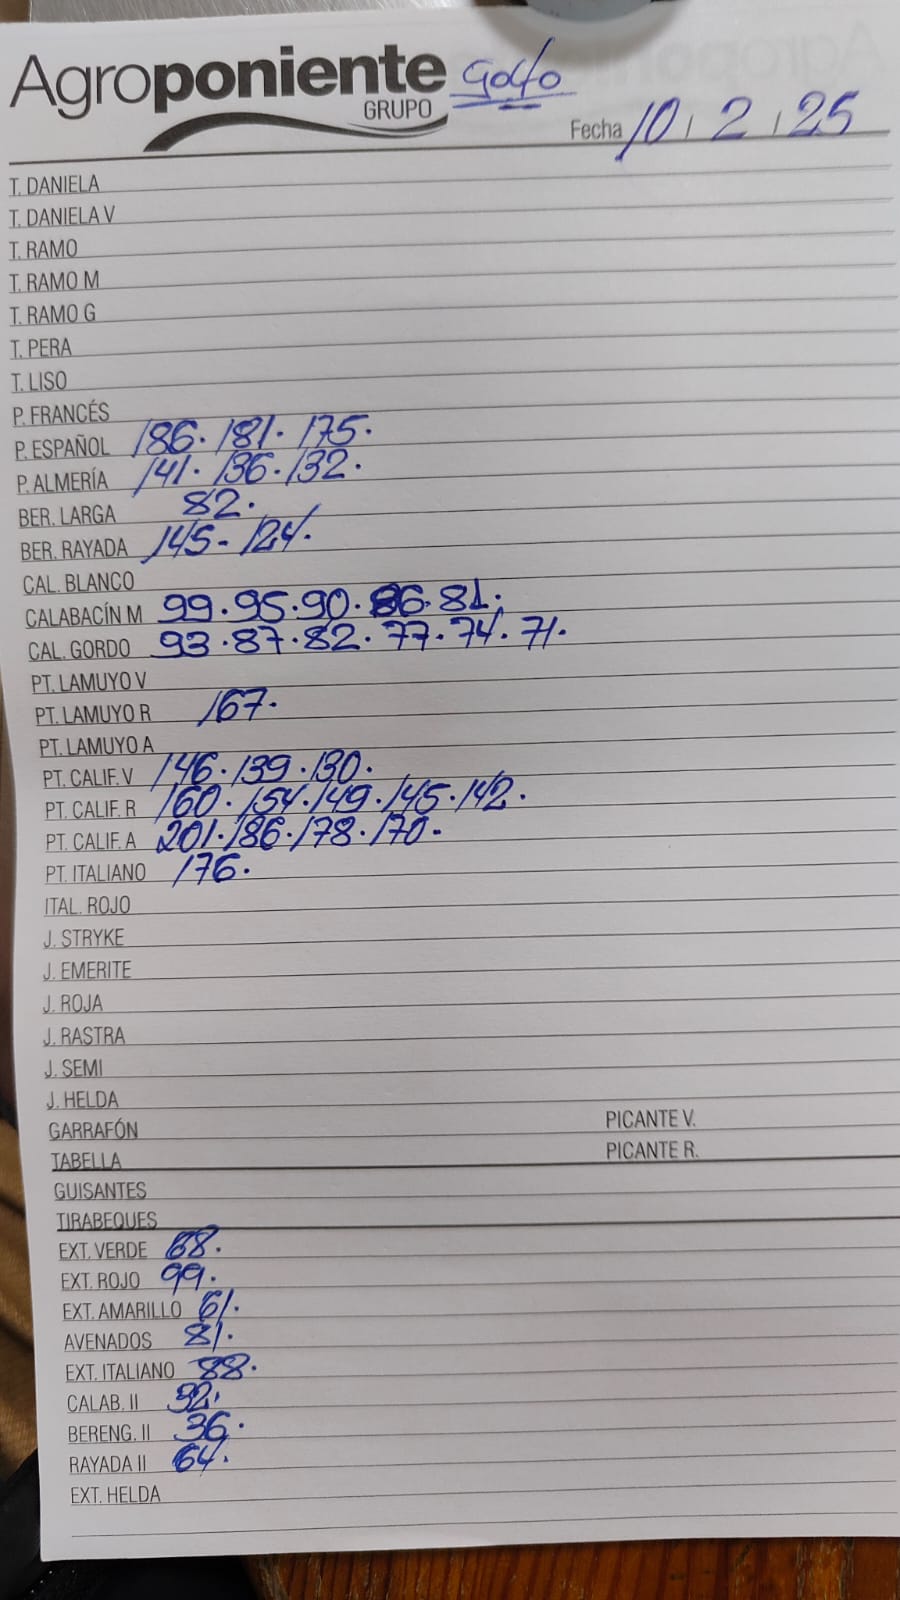 Agroponiente Golfo
GRUPO
Fecha 10 / 2 / 25
T. DANIELA
T. DANIELA V
T. RAMO
T. RAMO M
T. RAMO G
T. PERA
T. LISO
P. FRANCÉS
P. ESPAÑOL 186. 181. 175.
P. ALMERÍA 141. 136. 132.
BER. LARGA 82.
BER. RAYADA 145- 124.
CAL. BLANCO
CALABACÍN M 99.95.90.86.81.
CAL. GORDO 93.87.82.77.74.71.
PT. LAMUYO V
PT. LAMUYO R 167.
PT. LAMUYO A
PT. CALIF. V 146.139.130.
PT. CALIF. R 160.154.149.145.142.
PT. CALIF. A 201.186.178.170.
PT. ITALIANO 176.
ITAL. ROJO
J. STRYKE
J. EMERITE
J. ROJA
J. RASTRA
J. SEMI
J. HELDA
GARRAFÓN PICANTE V.
TABELLA PICANTE R.
GUISANTES
TIRABEQUES
EXT. VERDE
EXT. ROJO 99.
EXT. AMARILLO 61.
AVENADOS 81.
EXT. ITALIANO 88.
CALAB. II
BERENG. II 36.
RAYADA II 64.
EXT. HELDA